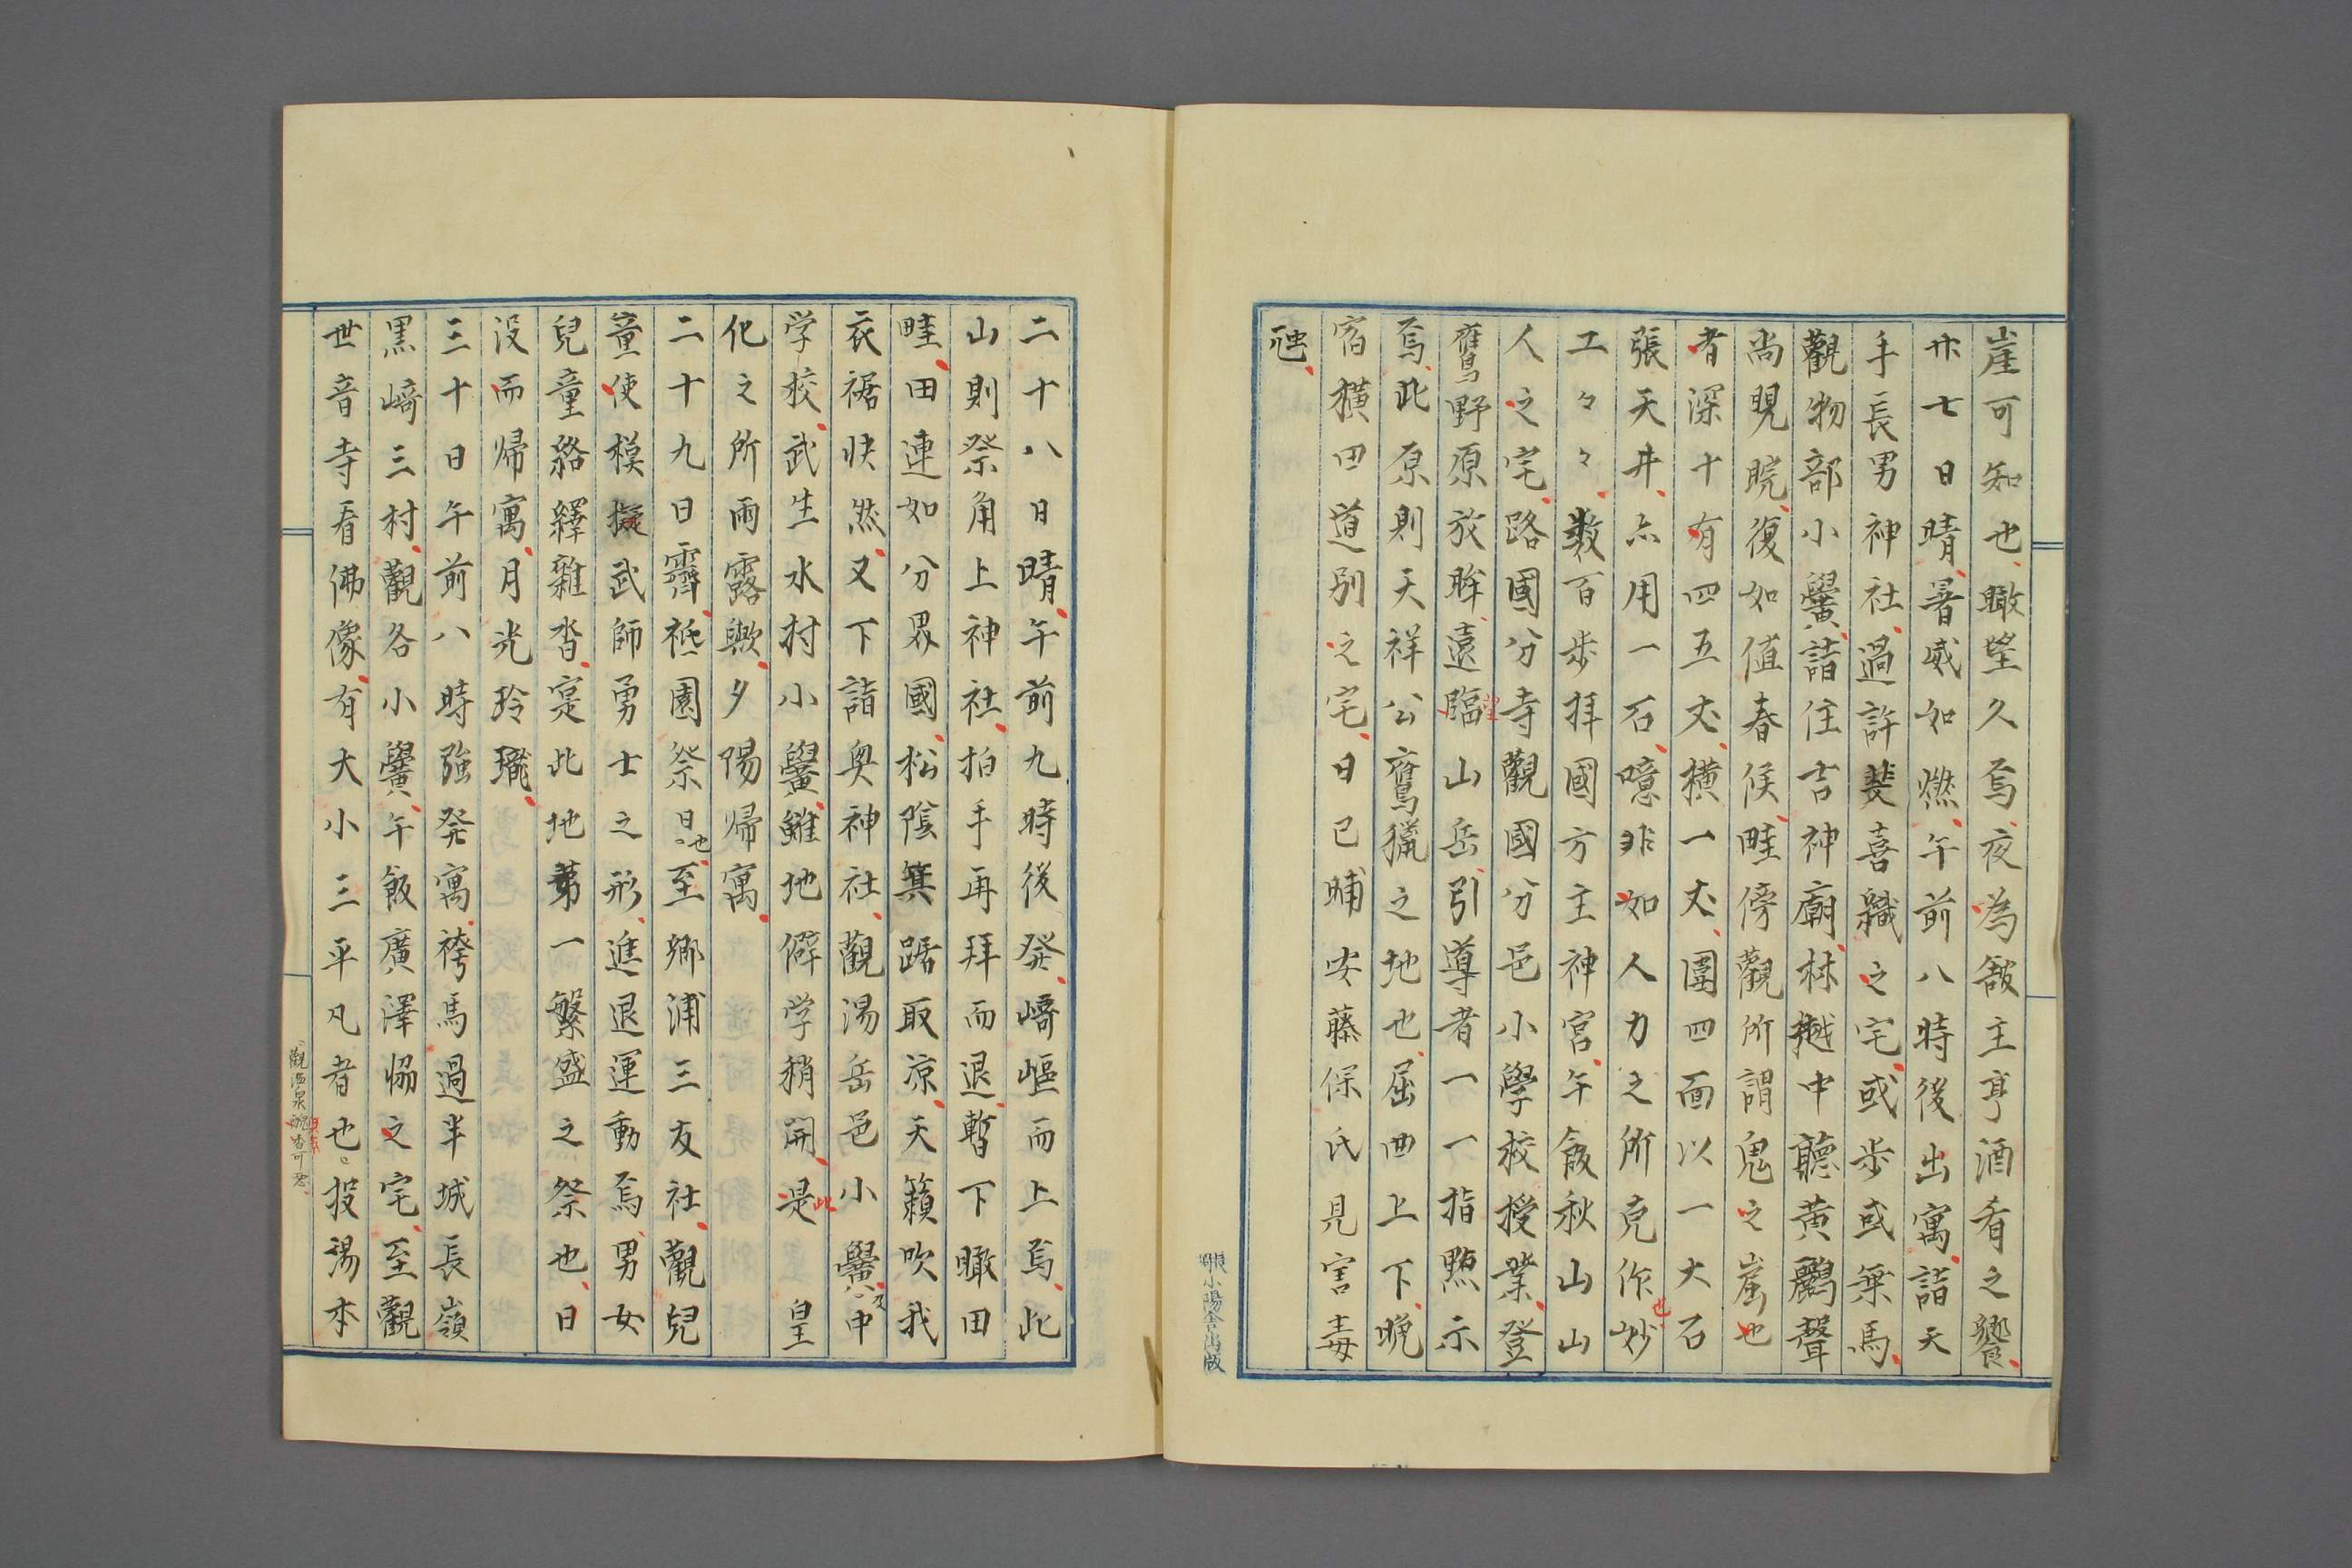 崖可知也瞰望久焉夜為舘主亨酒肴之饗
廾七日晴暑威如燃午前八時後出寓詣天
手長男神社過許斐喜織之宅或歩或乗馬
觀物部小黌詣住吉神廟林樾中聽黄鸝聲
尚睍睆復如值春候畦傍觀所謂鬼之窟也
者深十有四五丈横一丈圍四面以一大石
張天井亦用一石噫非如人力之所克作妙
也
工々々々数百歩拝國方主神宮午飯秋山山
人之宅路國分寺觀國分邑小學校授業登
鷹野原放眸遠臨山岳引導者一一指點示
望
焉此原則天祥公鷹獵之地也屈曲上下晚
宿横田道別之宅日已晡安藤保氏見害毒
䖝
眼小陽舎出版
二十八日晴午前九時後発﨑嶇而上焉此
山則祭角上神社拍手再拜而退暫下瞰田
畦田連如分界國松陰箕踞取凉天籟吹我
衣裾快然又下詣奥神社觀湯岳邑小黌及中
学校武生水村小黌雖地僻学稍開是 皇
此
化之所雨露歟夕陽帰寓
二十九日霽祗園祭日也至鄉浦三友社觀兒
童使模擬武師勇士之形進退運動焉男女
兒童絡繹雜沓寔此地第一繁盛之祭也日
沒而帰寓月光玲瓏
三十日午前八時強発寓袴馬過半城長嶺
黒﨑三村觀各小黌午飯廣澤恊之宅至觀
世音寺看佛像有大小三平凡者也投湯本
觀温泉